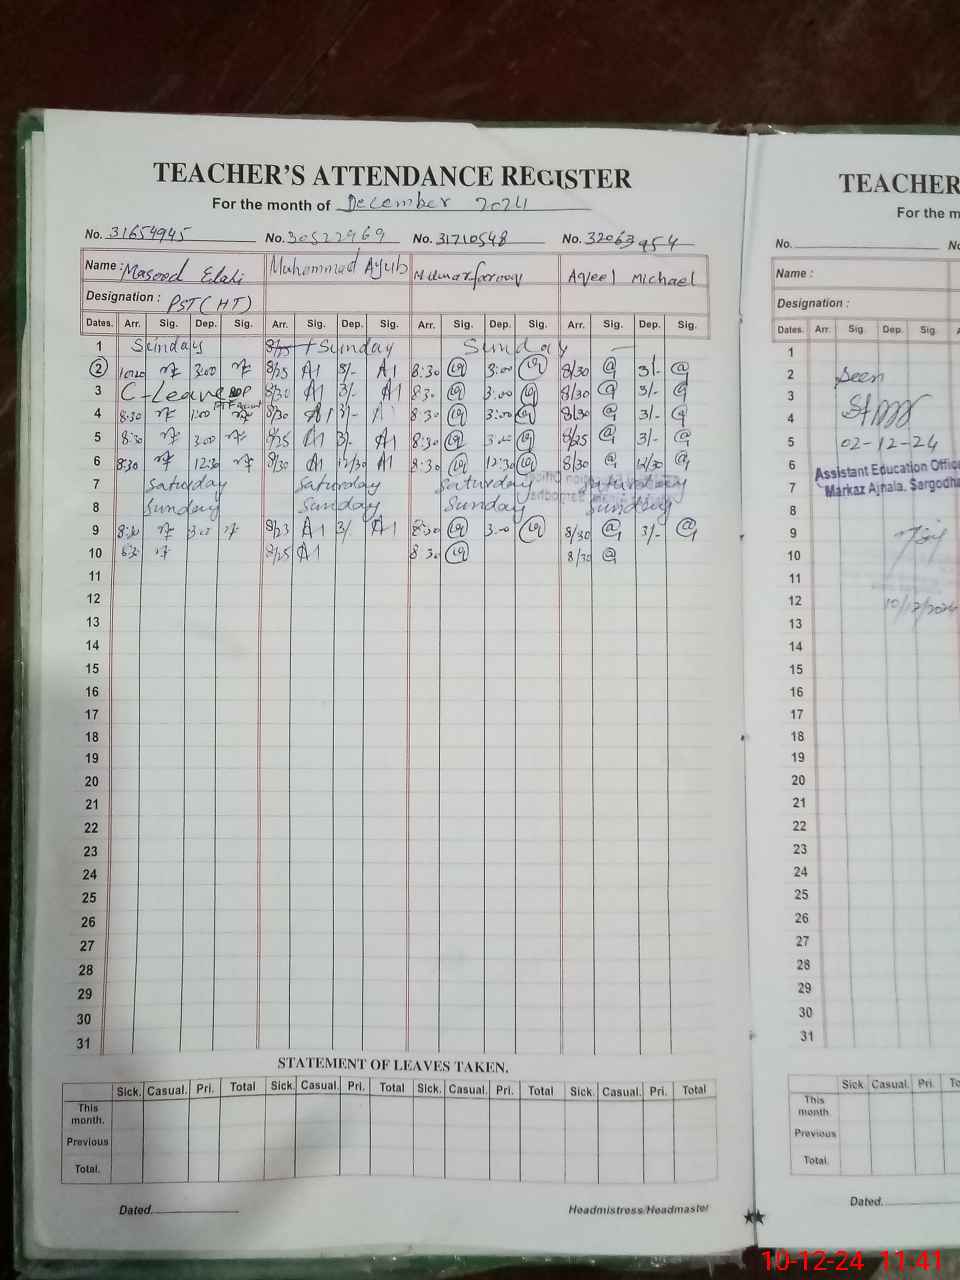 TEACHER'S ATTENDANCE REGISTER
For the month of December 2024
No. 31654945 No. 30522969 No. 31710548 No. 32063954
Name : Masood Elahi Muhammad Ayub M umar farooq Aqeel Michael
Designation : PST (HT)
Dates. Arr. Sig. Dep. Sig. Arr. Sig. Dep. Sig. Arr. Sig. Dep. Sig. Arr. Sig. Dep. Sig.
1 Sunday Sunday Sunday
2 3:00 8/25 A1 3/- A1 8:30 3:00 8/30 @ 3/- @
3 C-Leave 8/30 A1 3/- A1 8:30 3:00 8/30 @ 3/- @
4 8:30 1:00 8/30 A1 3/- 8:30 3:00 8/30 @ 3/- @
5 8:30 3:00 8/25 A1 3/- A1 8:30 3:00 8/25 @ 3/- @
6 8:30 12:30 8/30 A1 12/30 A1 8:30 12:30 8/30 @ 12/30 @
7 Saturday Saturday Saturday Saturday
8 Sunday Sunday Sunday Sunday
9 8:30 3:00 8/25 A1 3/ A1 8:30 3:00 8/30 @ 3/- @
10 8:30 8/25 A1 8:30 8/30 @
11
12
13
14
15
16
17
18
19
20
21
22
23
24
25
26
27
28
29
30
31
STATEMENT OF LEAVES TAKEN.
Sick. Casual. Pri. Total Sick. Casual. Pri. Total Sick. Casual. Pri. Total Sick. Casual. Pri. Total
This month.
Previous
Total.
Dated. Headmistress/Headmaster
TEACHER
For the m
No. No
Name :
Designation :
Dates. Arr. Sig. Dep. S
1
2 Seen
3
4
5 02-12-24
6 Assistant Education Office
7 Markaz Ajnala, Sargodha
8
9
10
11
12 10/12/2024
13
14
15
16
17
18
19
20
21
22
23
24
25
26
27
28
29
30
31
Sick Casual. Pri. To
This month.
Previous
Total.
Dated.
10-12-24 11:41